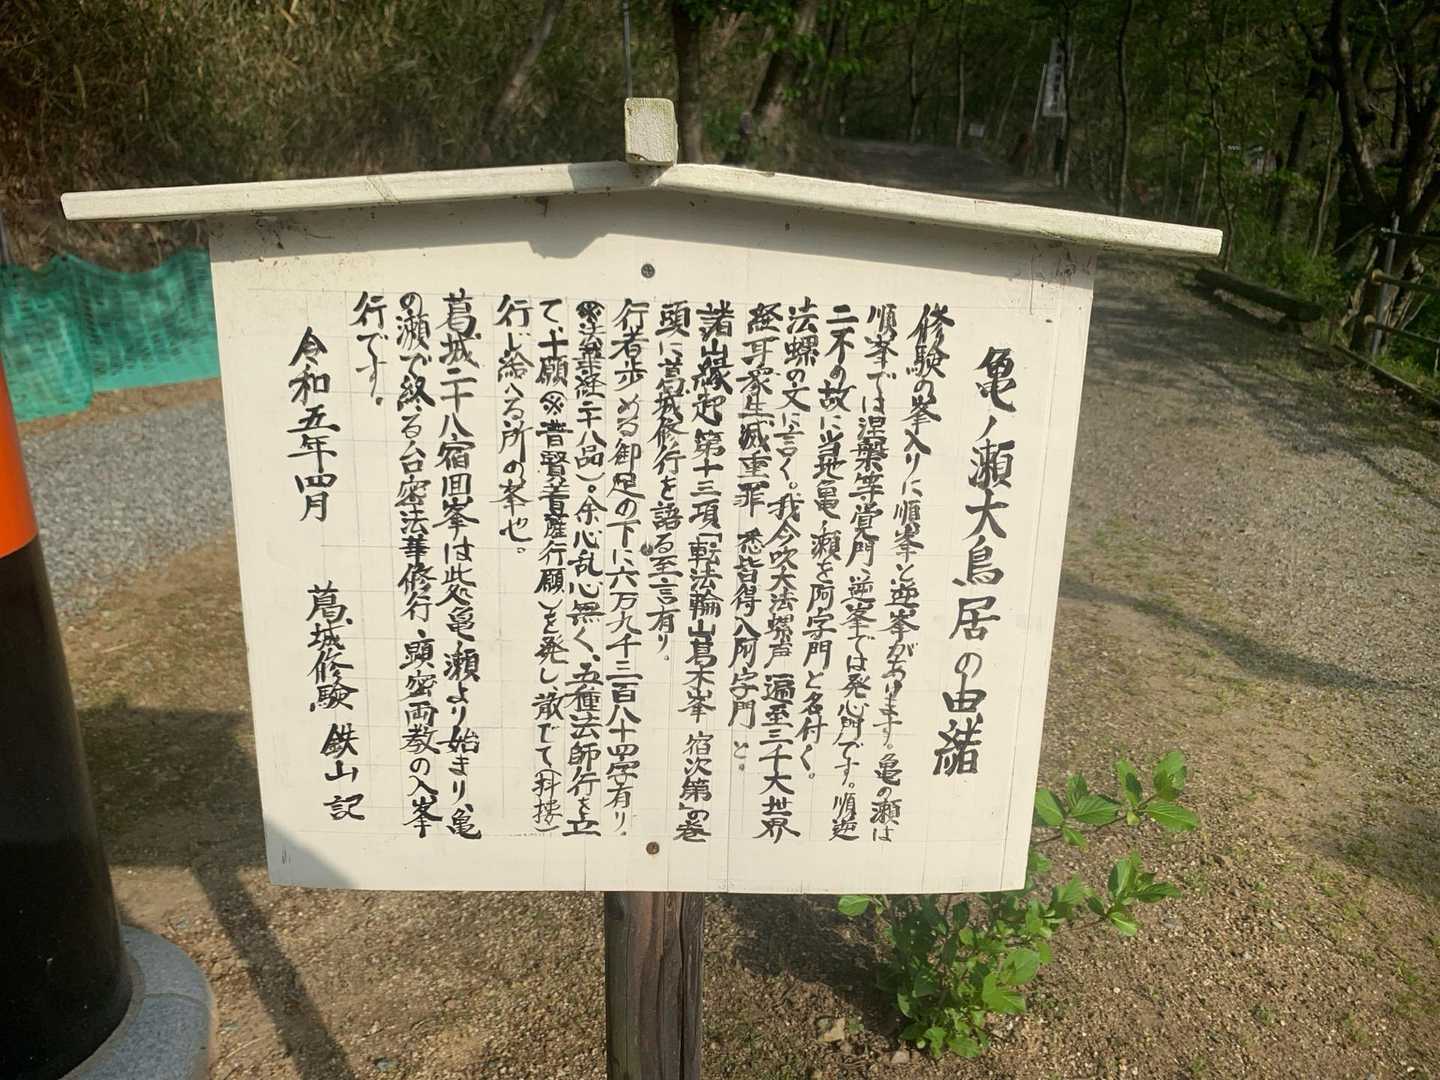 亀ノ瀬大鳥居の由緒
修験の峯入りに順峯と逆峯があります。亀の瀬は
順峯では涅槃等覚門、逆峯では発心門です。順逆
二不の故に当地亀ノ瀬を阿字門と名付く。
法螺の文に言く。我今吹大法螺声 遍至三千大世界
経耳衆生滅重罪 悉皆得入阿字門 と。
諸山縁起第十三項「転法輪山葛木峯 宿次第」の巻
頭に葛城修行を語る至言有り。
行者歩める御足の下に六万九千三百八十四字有り。
(※法華経二十八品)。余心乱心無く、五種法師行を立
て、十願(※普賢菩薩行願)を発し散じて(抖擻)
行じ給へる所の峯也。
葛城二十八宿回峯は此処亀ノ瀬より始まり、亀
の瀬で終る台密法華修行、顕密両教の入峯
行です。
令和五年四月 葛城修験 鉄山 記